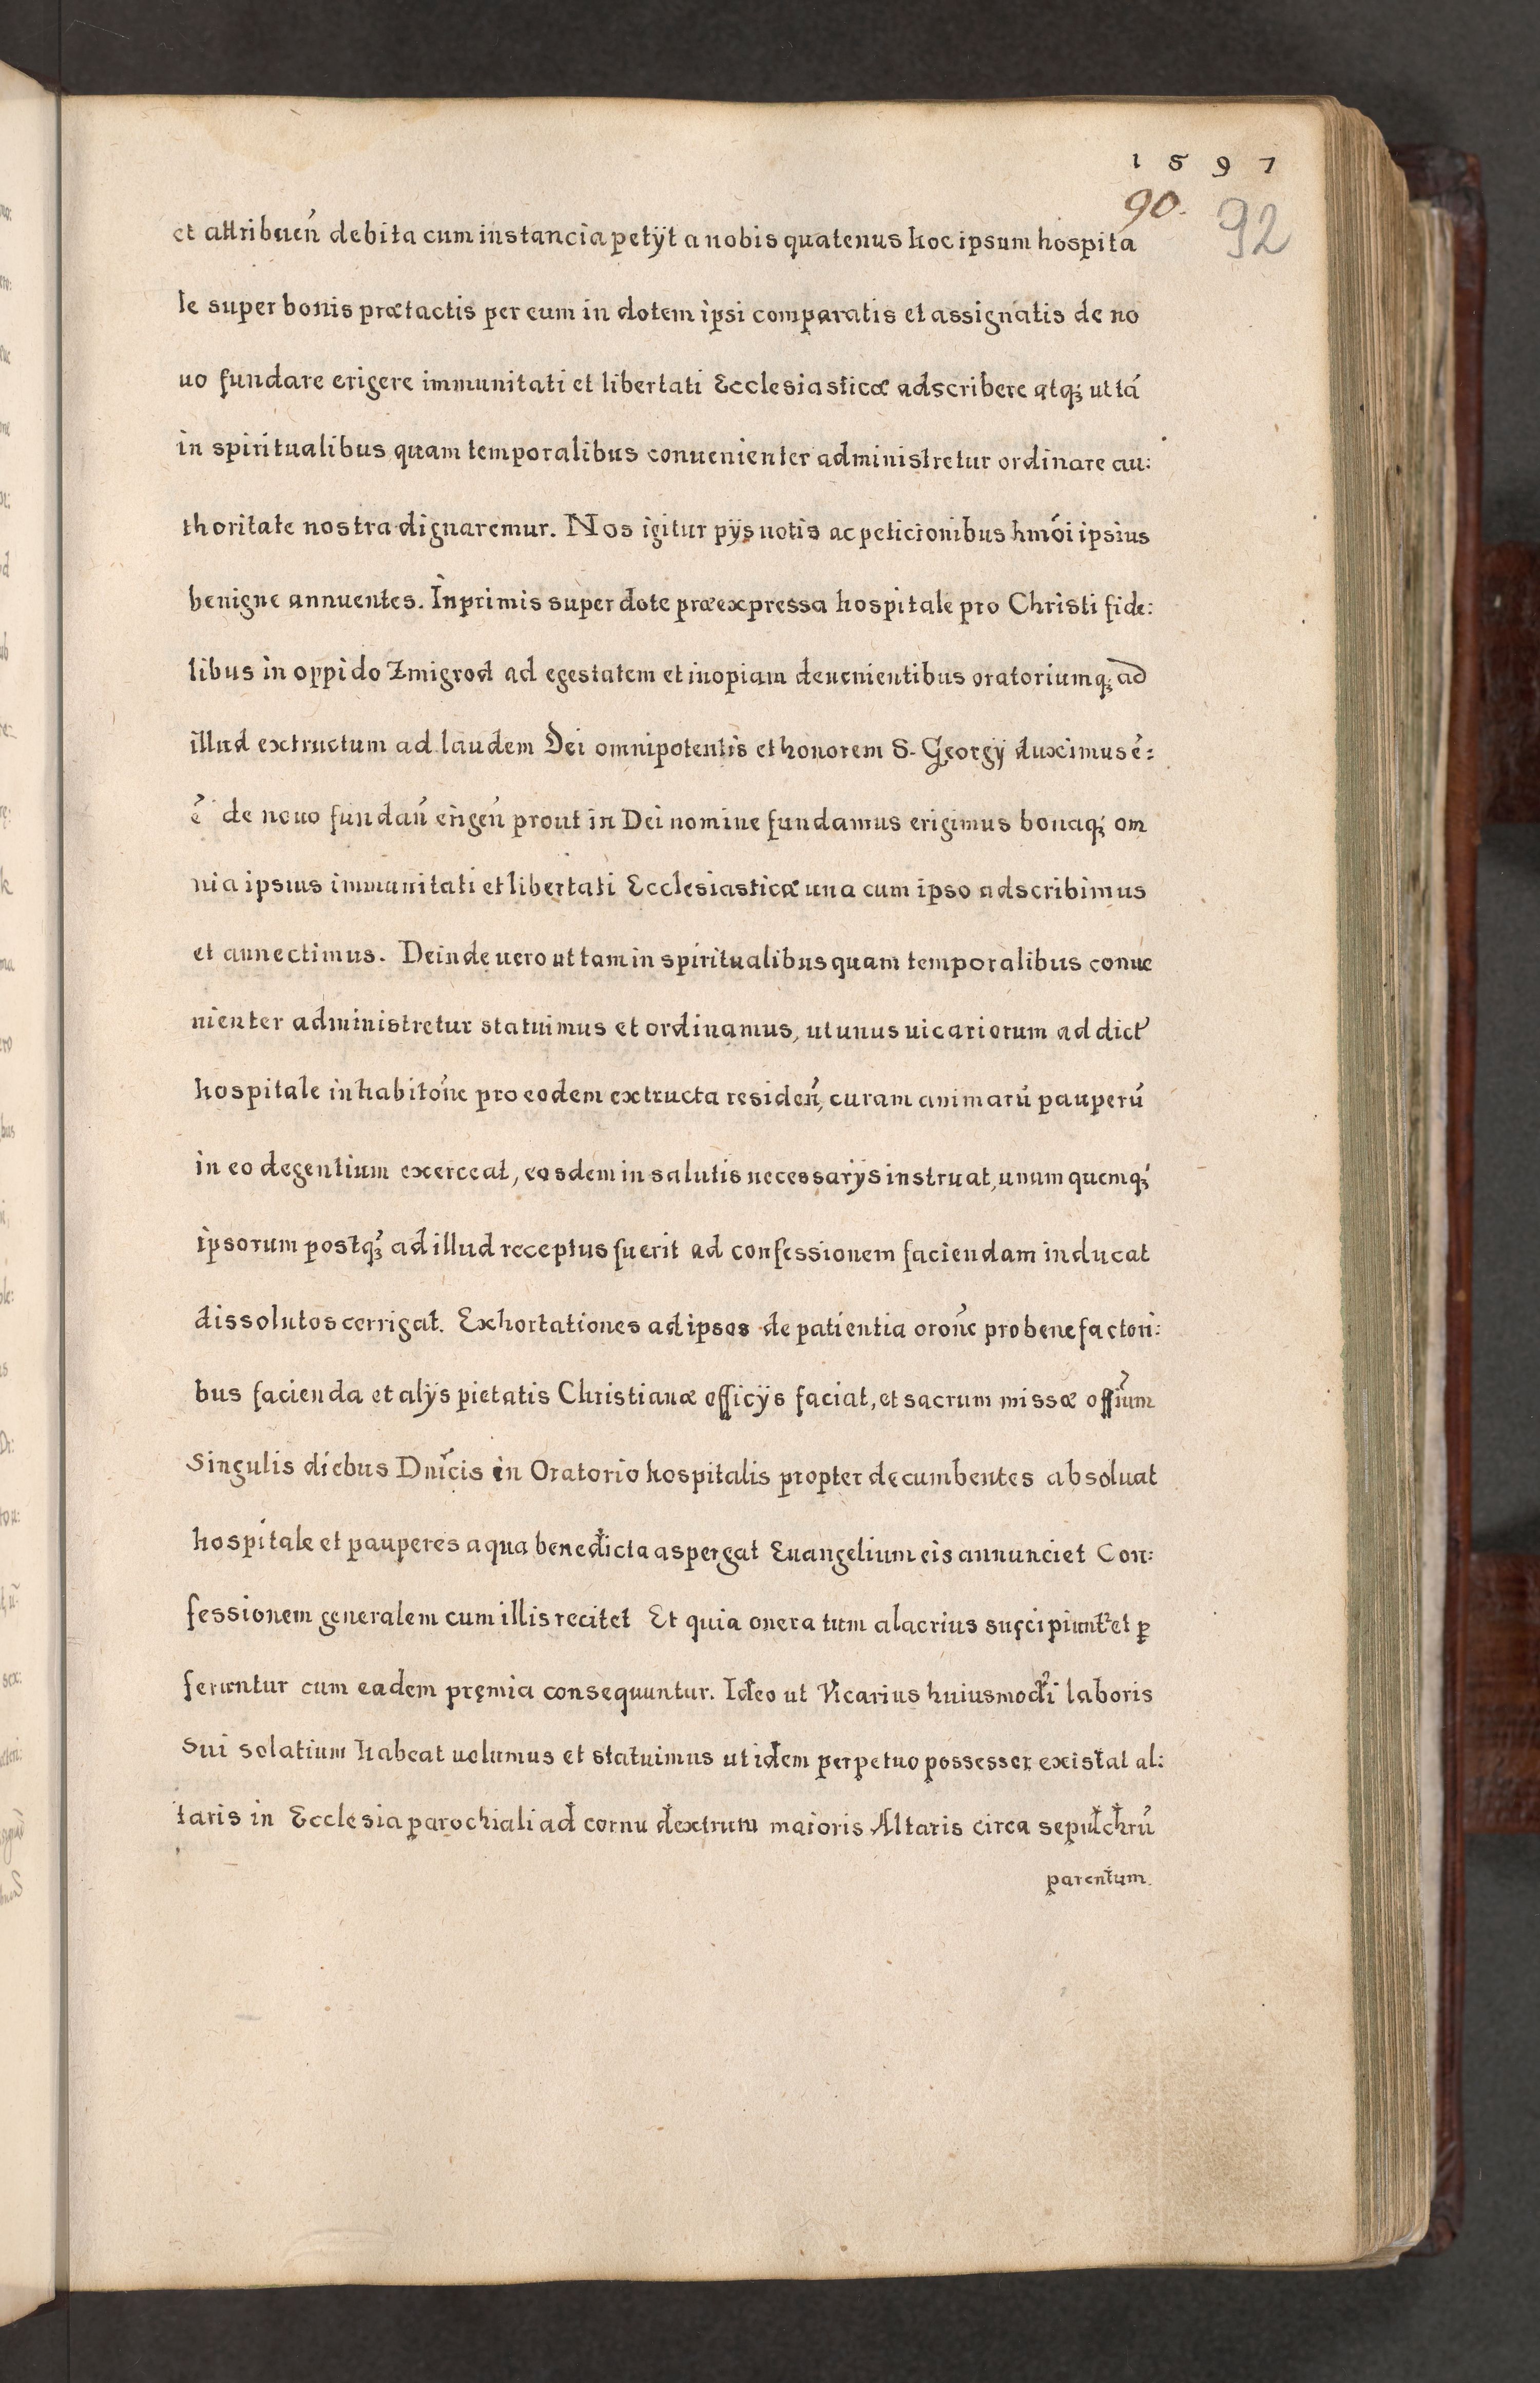 1 5 9 7
90.
92
et attribuen̄ debita cum instancia petÿt a nobis quatenus hoc ipsum hospita
le super bonis prætactis per eum in dotem ipsi comparatis et assignatis de no
uo fundare erigere immunitati et libertati Ecclesiasticæ adscribere atq; ut tā
in spiritualibus quam temporalibus conuenienter administretur ordinare au:
thoritate nostra dignaremur. Nos igitur pÿs uotis ac peticionibus hmōi ipsius
benigne annuentes. Inprimis super dote præexpressa hospitale pro Christi fide:
libus in oppido Zmigrod ad egestatem et inopiam deuenientibus oratoriumq; ad
illud extructum ad laudem Dei omnipotentis et honorem S. Georgÿ duximus ē:
ē de nouo fundan̄ erigen̄ prout in Dei nomine fundamus erigimus bonaq; om
nia ipsius immunitati et libertati Ecclesiasticæ una cum ipso adscribimus
et annectimus. Deinde uero ut tam in spiritualibus quam temporalibus conue
nienter administretur statuimus et ordinamus, ut unus uicariorum ad dict̄
hospitale inhabitōne pro eodem extructa residen̄, curam animarū pauperū
in eo degentium exerceat, eosdem in salutis necessarÿs instruat, unumquemq;
ipsorum postq; ad illud receptus fuerit ad confessionem faciendam inducat
dissolutos corrigat. Exhortationes ad ipsos de patientia orōne pro benefactori:
bus facienda et alÿs pietatis Christianæ officÿs faciat, et sacrum missæ offīum
singulis diebus Dnīcis in Oratorio hospitalis propter decumbentes absoluat
hospitale et pauperes aqua benedicta aspergat Euangelium eis annunciet Con:
fessionem generalem cum illis recitet Et quia onera tum alacrius suscipiunt et ꝑ
feruntur cum eadem pręmia consequuntur. Ideo ut Vicarius huiusmodi laboris
sui solatium habeat uolumus et statuimus ut idem perpetuo possessor existat al:
taris in Ecclesia parochiali ad cornu dextrum maioris Altaris circa sepulchrū
parentum.